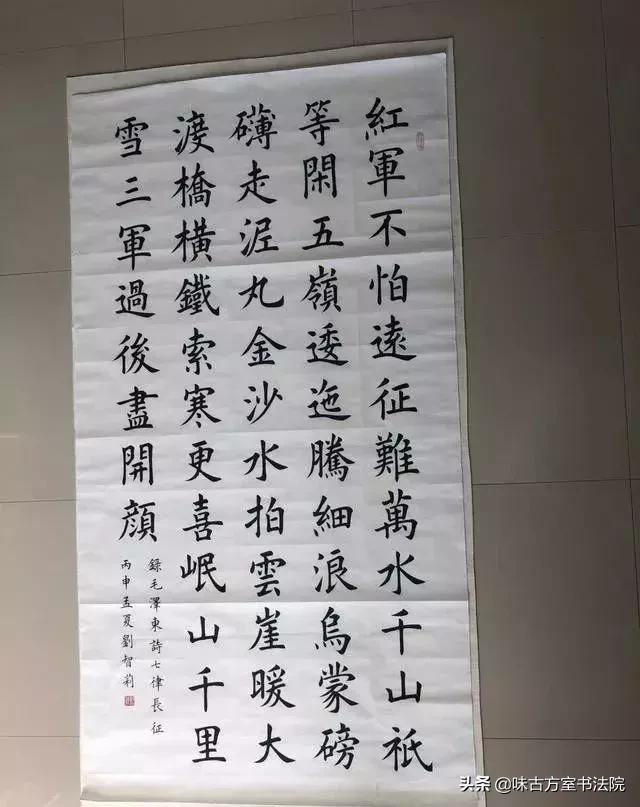 紅軍不怕遠征難萬水千山祇
等閑五嶺逶迤騰細浪烏蒙磅
礴走泥丸金沙水拍雲崖暖大
渡橋橫鐵索寒更喜岷山千里
雪三軍過後盡開顏
錄毛澤東詩七律長征
丙申孟夏劉智莉
头条 @味古方室书法院